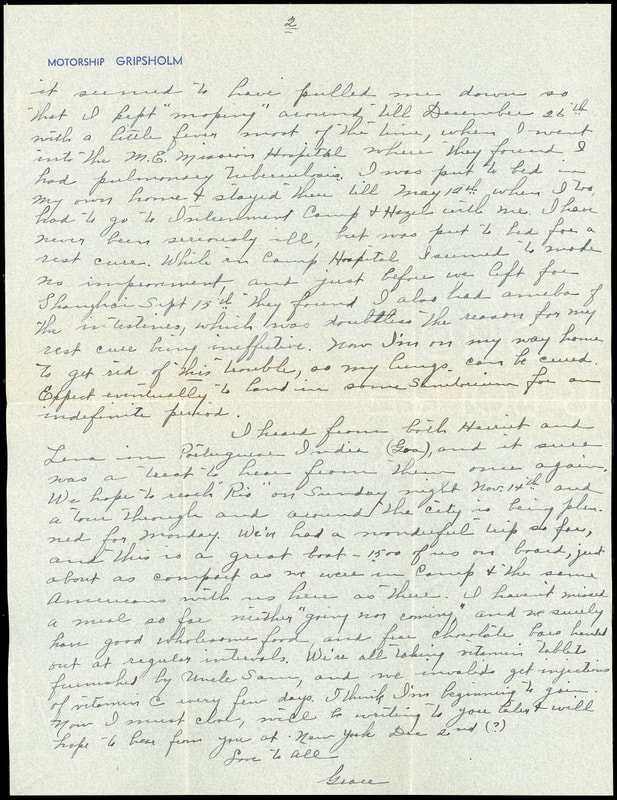 2
MOTORSHIP GRIPSHOLM
it seemed to have pulled me down so
that I kept "moping" around till December 26th
with a little fever most of the time, when I went
into the M.E. Mission Hospital where they found I
had pulmonary tuberculosis. I was put to bed in
my own home & stayed there till May 12th when I too
had to go to Internment Camp & Hazel with me. I have
never been seriously ill, but was put to bed for a
rest cure. While in Camp Hospital I seemed to make
no improvement and just before we left for
Shanghai Sept 15th they found I also had ameba of
the intestines, which was doubtless the reason for my
rest cure being ineffective. Now I'm on my way home
to get rid of this trouble, so my lungs can be cured.
Expect eventually to land in some Sanitorium for an
indefinite period.
I heard from both Harriet and
Lena in Portuguese India (Goa), and it sure
was a treat to hear from them once again.
We hope to reach "Rio" on Sunday night Nov. 14th and
a tour through and around the city is being plan-
ned for Monday. We've had a wonderful trip so far,
and this is a great boat - 1500 of us on board, just
about as compact as we were in Camp & the same
Americans with us here as there. I haven't missed
a meal so far neither "going nor coming" and we surely
have good wholesome food and free chocolate bars handed
out at regular intervals. We're all taking vitamin tablets
furnished by Uncle Sam, and we invalids get injections
of vitamin C every few days. I think I'm beginning to gain.
Now I must close, will be writing to you later & will
hope to hear from you at New York Dec 2nd (?)
Love to all
Grace